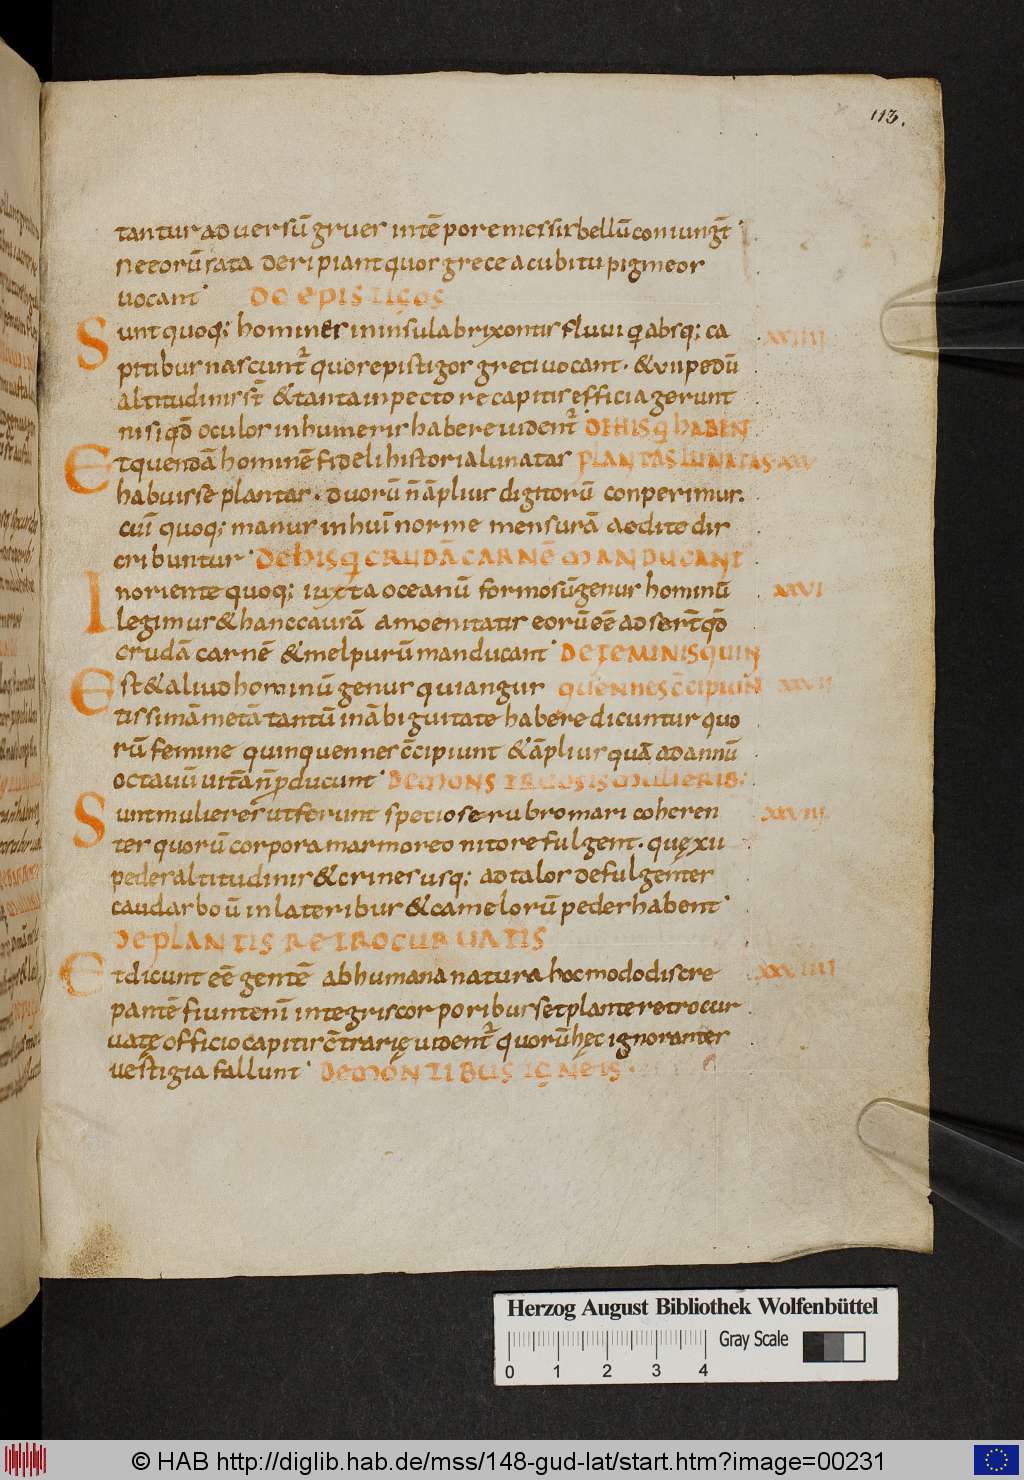 113.
tantur aduersū grues intē pore messis bellū coniungt̄
ne eorū sata deripiant quos grece a cubitu pigmeos
uocant DE EPISTIGOS
Sunt quoq; homines in insula brixontis fluuii q absq; ca XXIIII
pitibus nascunt̄ quos epistigos greci uocant · & VII pedū
altitudinis st̄ & tanta in pectore capitis efficia gerunt
nisi qđ oculos in humeris habere uident̄ DE HIS Q HABEN
Et quendā hominē fideli historia lunatas PLANTAS LUNATAS XXV
habuisse plantas · duorū n̄ āplius digitorū conperimus.
cui quoq; manus in hui norme mensurā aedite dis
cribuntur DE HIS Q CRUDĀ CARNĒ MANDUCANT
In oriente quoq; iuxta oceanū formosū genus hominū XXVI
legimus & hanc causā amoenitatis eorū eē adsert̄ qđ
crudā carnē & mel purū manducant DE FEMINIS QUIN
Est & aliud hominū genus qui angus QUENNES C̄CIPIUN XXVII
tissimā metā tantū in ābiguitate habere dicuntur quo
rū femine quinquennes c̄cipiunt & āplius quā ad annū
octauū uitā n̄ pducunt DE MONSTRUOSIS MULIERIB;
Sunt mulieres ut ferunt speciose rubro mari coheren XXVIII
tes quorū corpora marmoreo nitore fulgent · quę XII
pedes altitudinis & crines usq; ad talos defulgentes
caudas boū in lateribus & camelorū pedes habent
DE PLANTIS RETROCURUATIS
Et dicunt eē gentē ab humana natura hoc modo discre XXVIIII
pantē fiunt enī integris corporibus set plante retrocur
uatę officio capitis c̄trarię uident̄ quorū hęc ignorantes
uestigia fallunt DE MONTIBUS IGNEIS ·
Herzog August Bibliothek Wolfenbüttel
Gray Scale
0 1 2 3 4
© HAB http://diglib.hab.de/mss/148-gud-lat/start.htm?image=00231